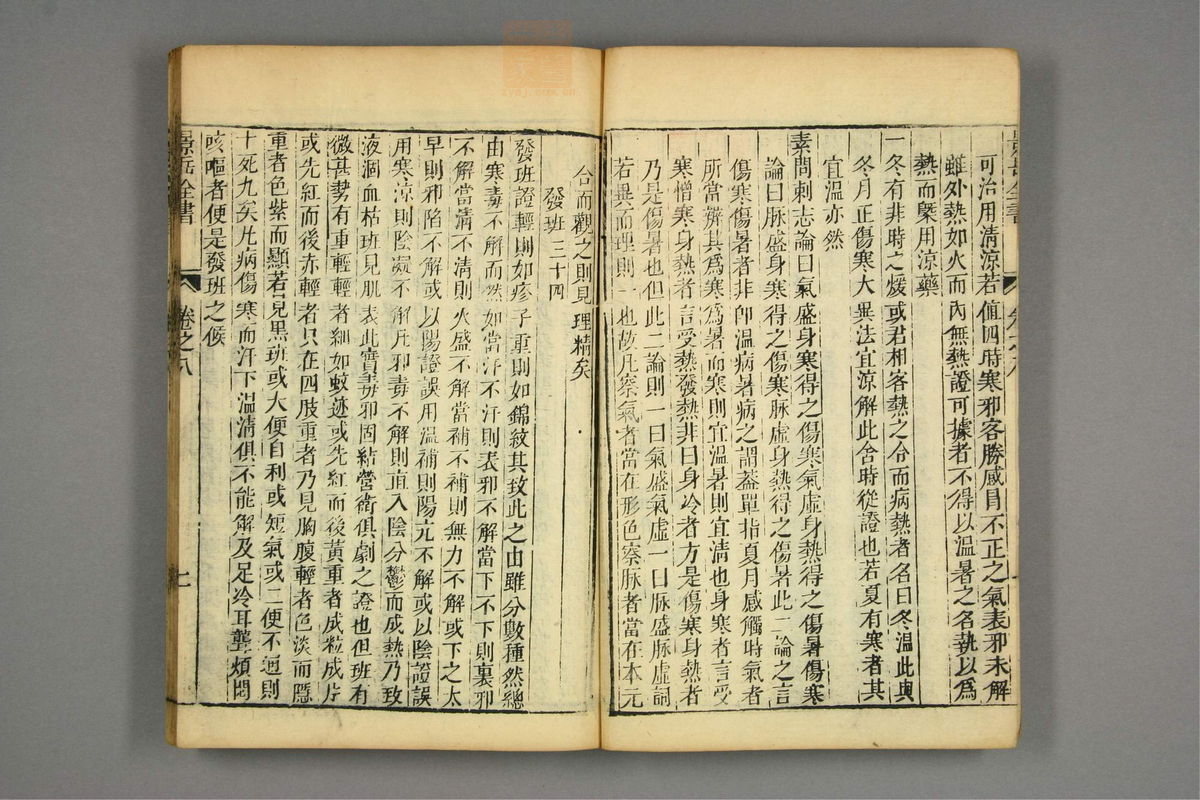 可治用清涼若值四時寒邪客勝感冒不正之氣表邪未解
雖外熱如火而內無熱證可據者不得以溫暑之名執以爲
熱而槩用涼藥
一冬有非時之煖或君相客熱之令而病熱者名曰冬溫此與
冬月正傷寒大異法宜涼解此舍時從證也若夏有寒者其
宜溫亦然
素問刺志論曰氣盛身寒得之傷寒氣虛身熱得之傷暑傷寒
論曰脉盛身寒得之傷寒脉虛身熱得之傷暑此二論之言
傷寒傷暑者非卽溫病暑病之謂葢單指夏月感觸時氣者
所當辨其爲寒爲暑而寒則宜溫暑則宜清也身寒者言受
寒憎寒身熱者言受熱發熱非曰身冷者方是傷寒身熱者
乃是傷暑也但此二論則一曰氣盛氣虛一曰脉盛脉虛詞
若異而理則一也故凡察氣者當在形色察脉者當在本元
合而觀之則見理精矣
發斑三十四
發斑證輕則如疹子重則如錦紋其致此之由雖分數種然總
由寒毒不解而然如當汗不汗則表邪不解當下不下則裏邪
不解當清不清則火盛不解當補不補則無力不解或下之太
早則邪陷不解或以陽證誤用溫補則陽亢不解或以陰證誤
用寒涼則陰凝不解凡邪毒不解則直入陰分鬱而成熱乃致
液涸血枯斑見肌表此實毒邪固結營衛俱劇之證也但斑有
微甚勢有重輕輕者細如蚊迹或先紅而後黃重者成粒成片
或先紅而後赤輕者只在四肢重者乃見胸腹輕者色淡而隱
重者色紫而顯若見黑斑或大便自利或短氣或二便不通則
十死九矣凡病傷寒而汗下溫清俱不能解及足冷耳聾煩悶
咳嘔者便是發斑之候
景岳全書
卷之八
七